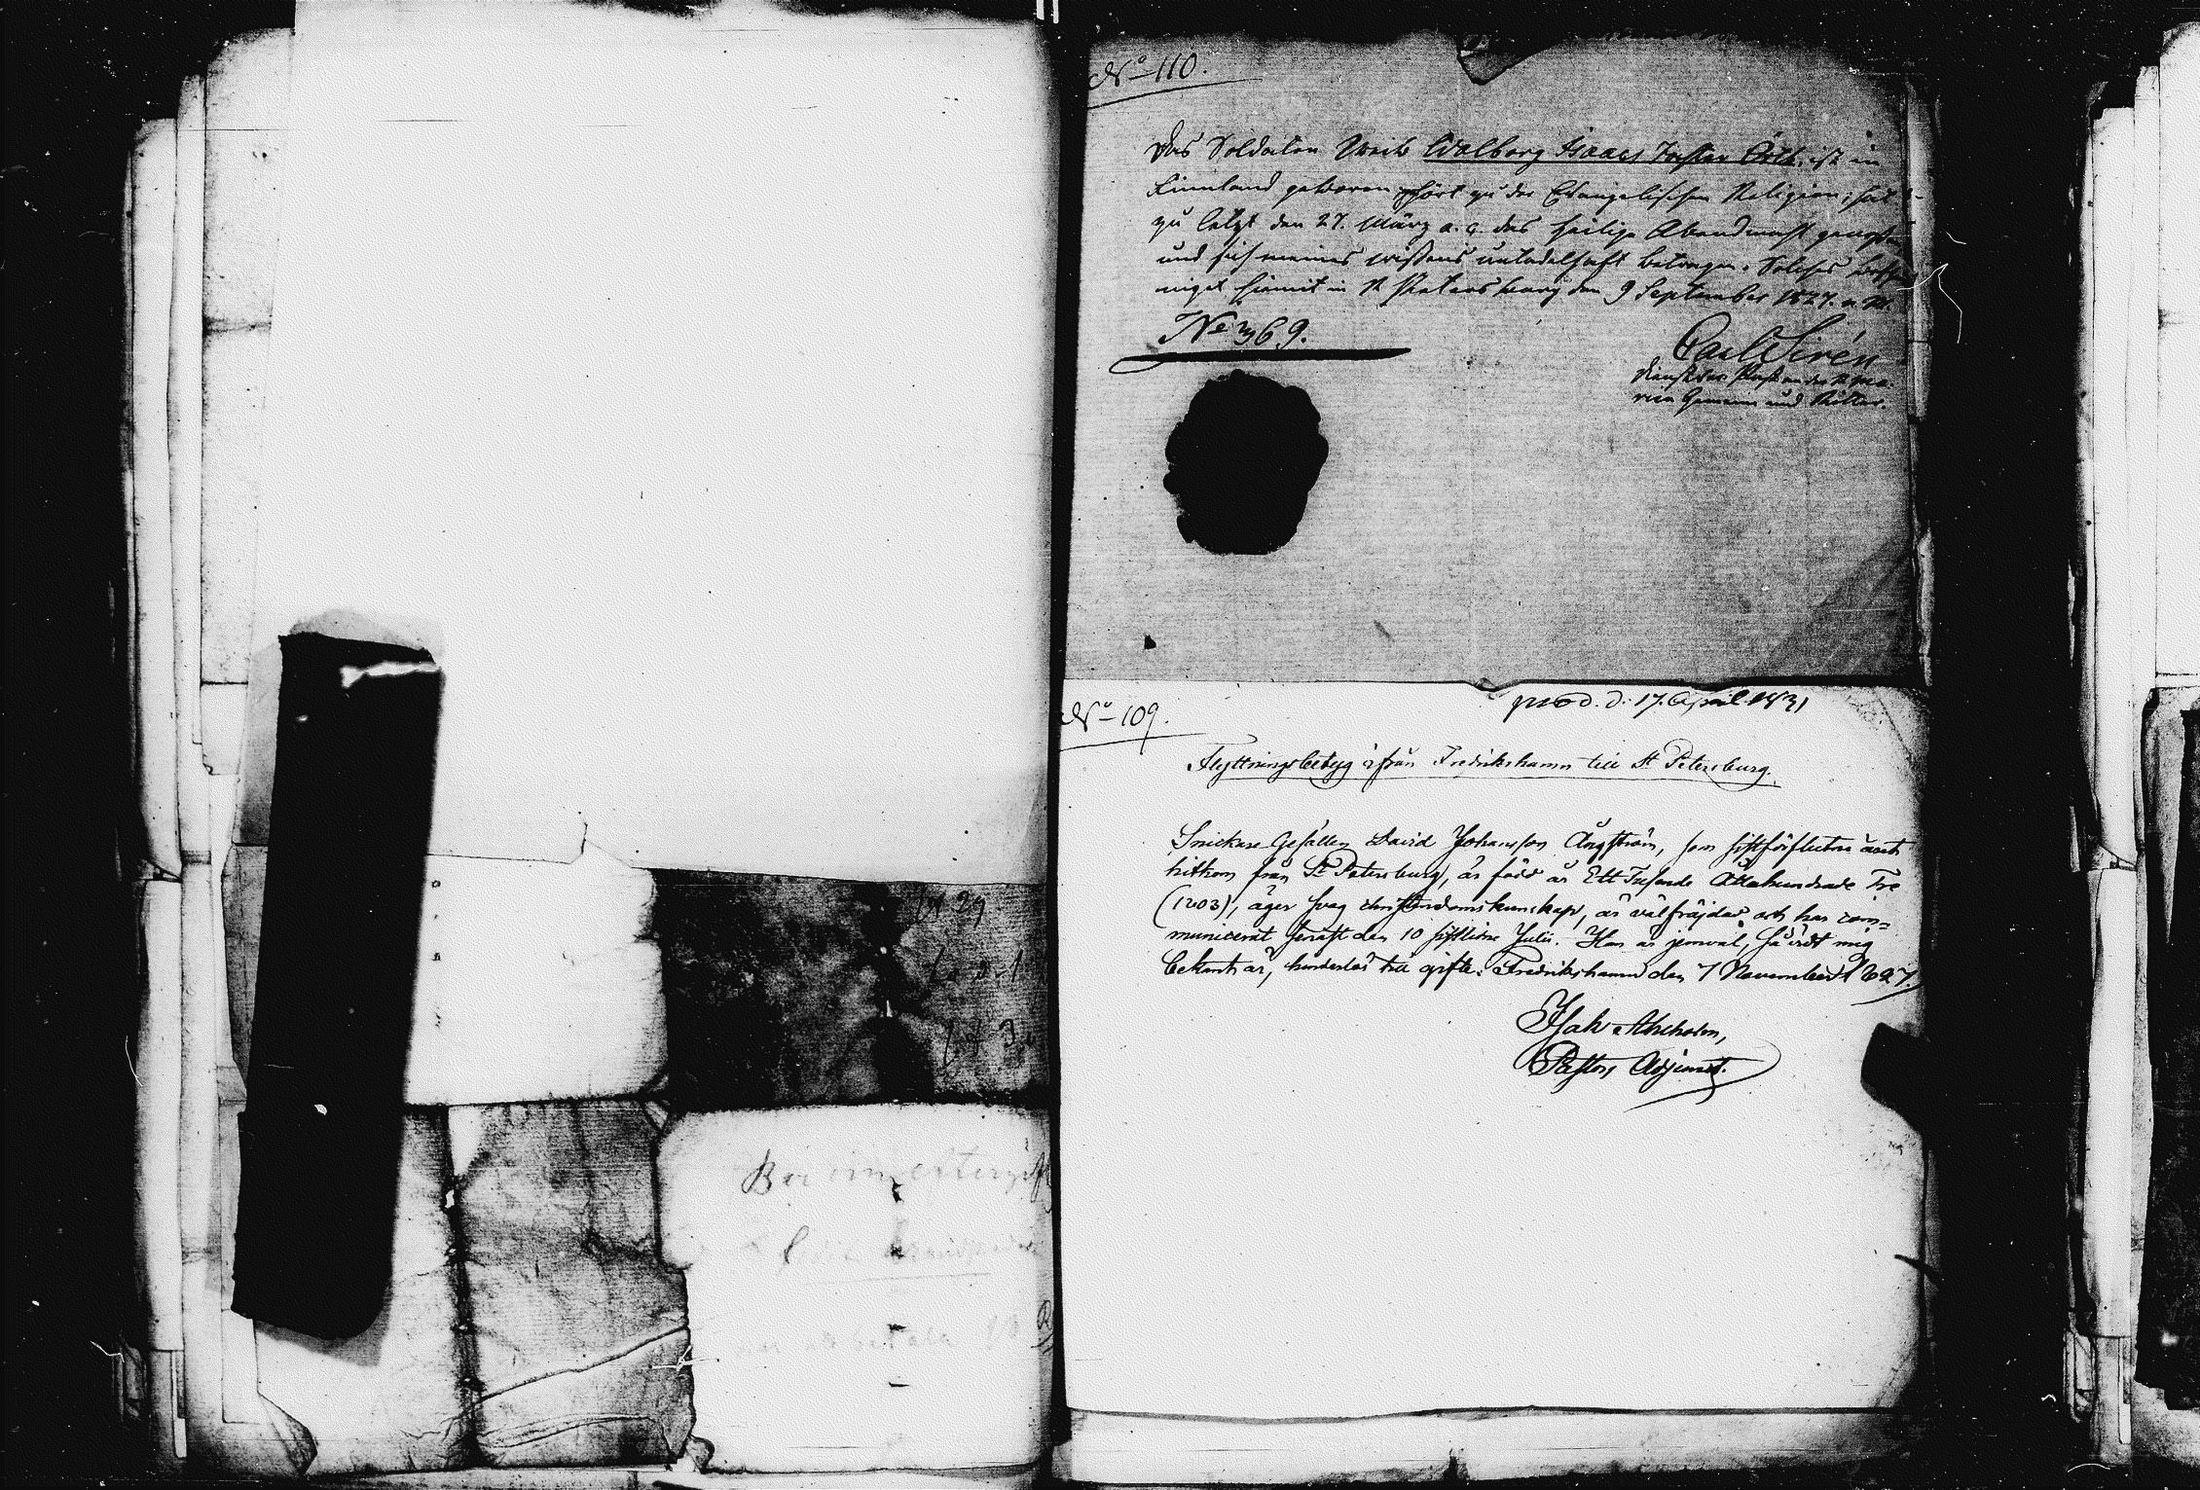 No 110.
Des Soldaten Weib Walborg Isaacs Tochter ist in
Finnland geboren gehört zu der Evangelischen Religion; hat
zu letzt den 27. März a. c. das heilige Abendmahl genoßen
und sich meines wißens untadelhaft betragen. Solches
hiemit in St Petersburg den 9 September 1827.
No 369.
Carl Sirén
Pastor an der St Ma-
rien Gemeine und Ritter.
No 109.
prod. d. 17. April 1831
Flyttningsbetyg ifrån Fredrikshamn till St Petersburg.
Snickare Gesällen David Johansson Ångström, som sistförflutne
hitkom från St Petersburg, är född år Ett Tusende Åttahundrade Tre
(1803), äger svag christendomskunskap, är välfräjdad och har com=
municerat senast den 10 sistlidne Julii. Han är jemväl, så vidt mig
bekant är, hinderlös till gifte. Fredrikshamn den 7 November 1827.
Isak Ahlholm,
Pastors Adjunct.
29